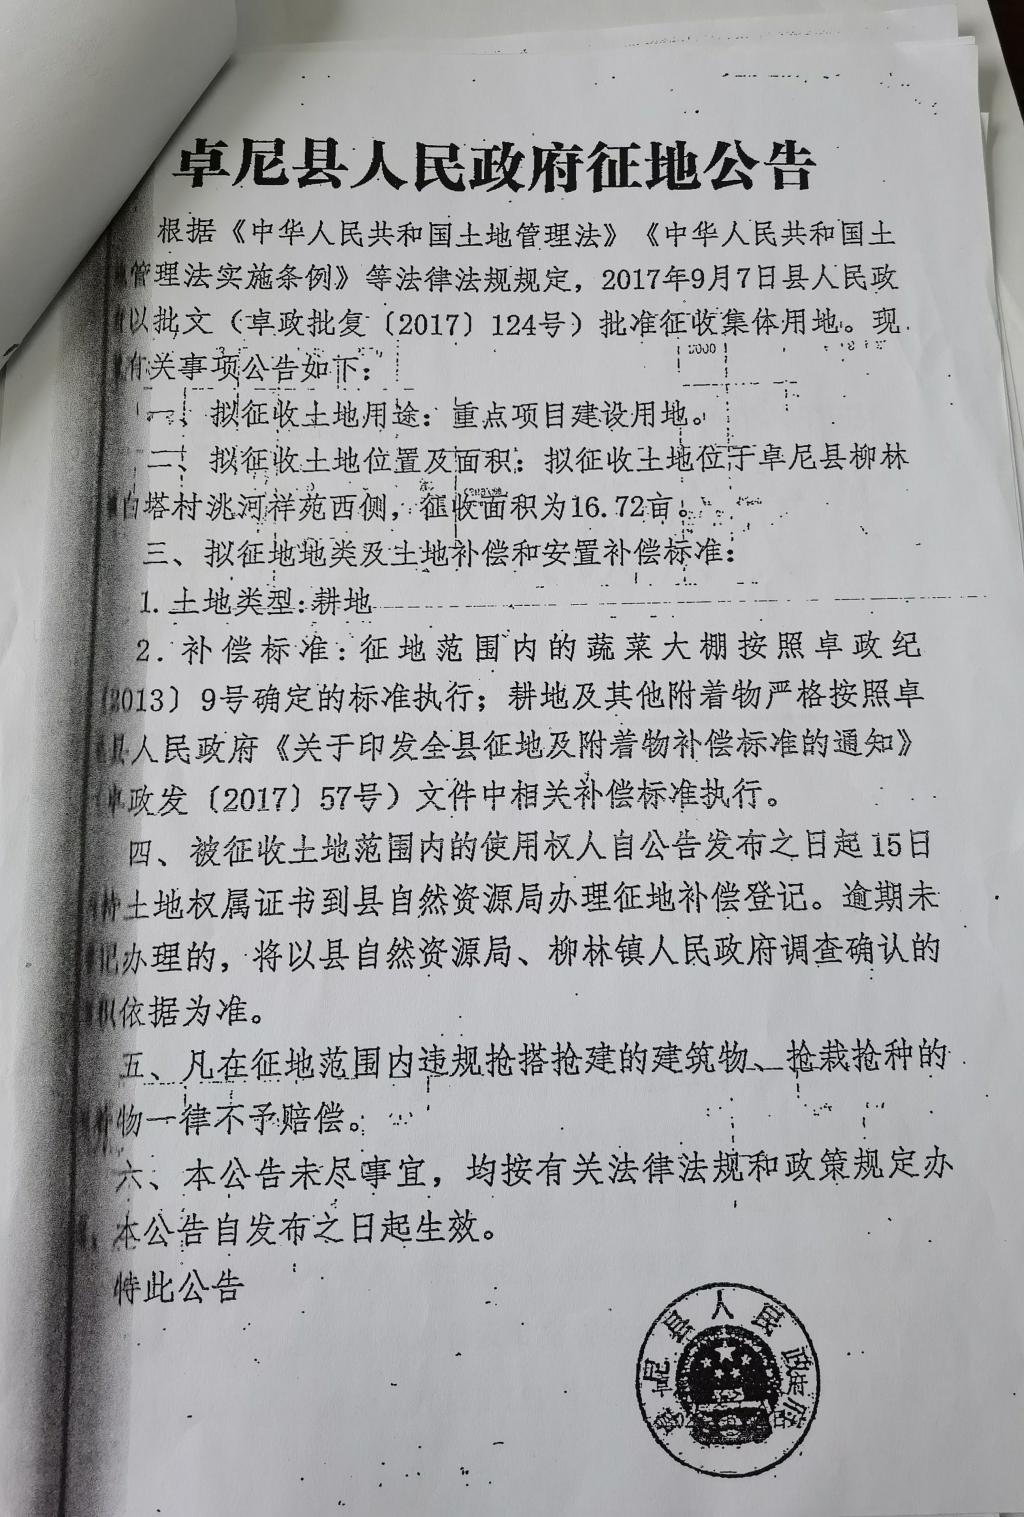 卓尼县人民政府征地公告
根据《中华人民共和国土地管理法》《中华人民共和国土
管理法实施条例》等法律法规规定，2017年9月7日县人民政
以批文（卓政批复〔2017〕124号）批准征收集体用地。现
有关事项公告如下：
一、拟征收土地用途：重点项目建设用地。
二、拟征收土地位置及面积：拟征收土地位于卓尼县柳林
白塔村洮河祥苑西侧，征收面积为16.72亩。
三、拟征地地类及土地补偿和安置补偿标准：
1.土地类型：耕地
2.补偿标准：征地范围内的蔬菜大棚按照卓政纪
〔2013〕9号确定的标准执行；耕地及其他附着物严格按照卓
县人民政府《关于印发全县征地及附着物补偿标准的通知》
卓政发〔2017〕57号）文件中相关补偿标准执行。
四、被征收土地范围内的使用权人自公告发布之日起15日
持土地权属证书到县自然资源局办理征地补偿登记。逾期未
记办理的，将以县自然资源局、柳林镇人民政府调查确认的
依据为准。
五、凡在征地范围内违规抢搭抢建的建筑物、抢栽抢种的
物一律不予赔偿。
六、本公告未尽事宜，均按有关法律法规和政策规定办
本公告自发布之日起生效。
特此公告
卓尼县人民政府